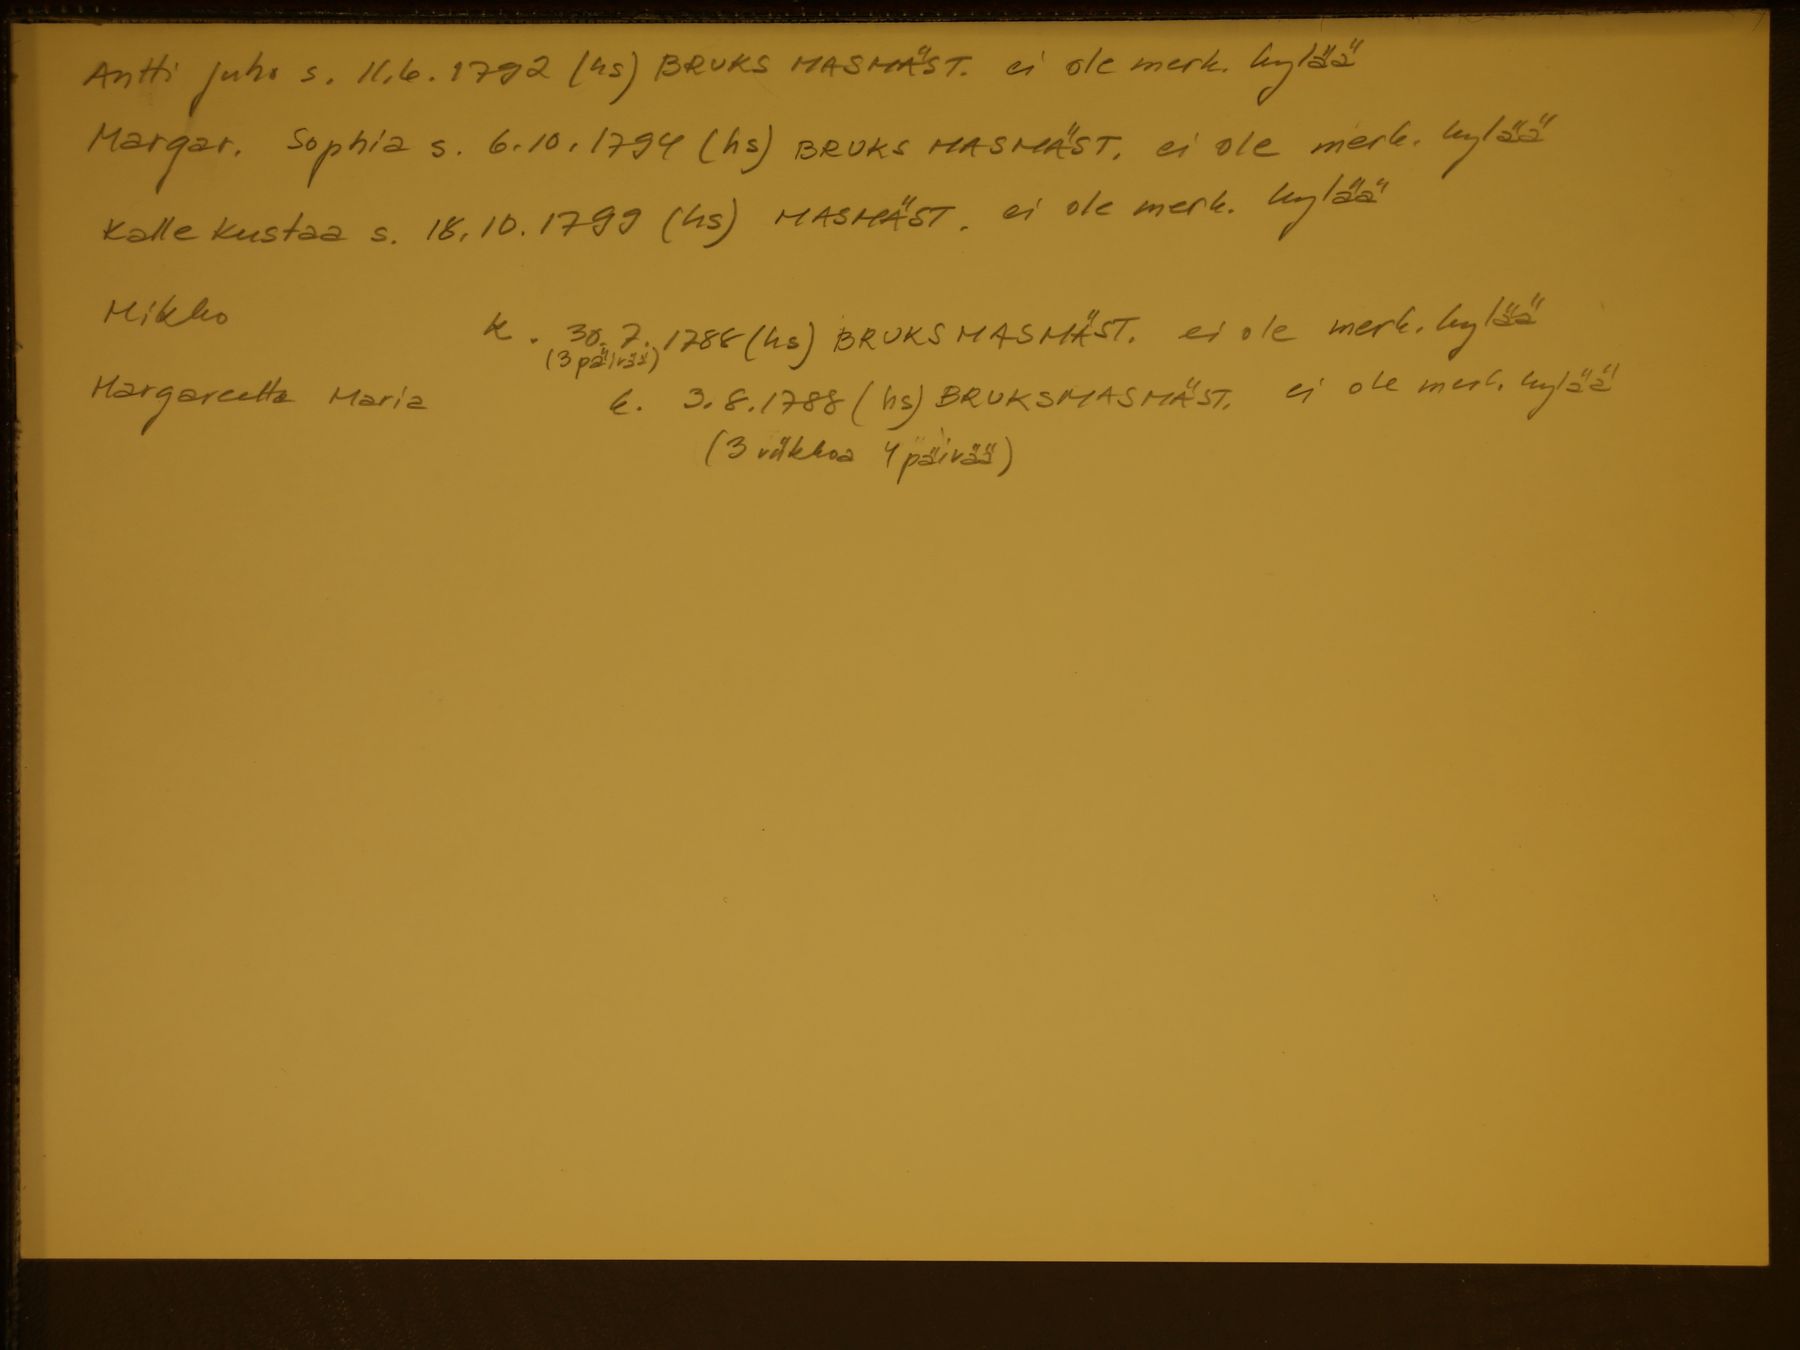 Antti Juho s. 11.6.1792 (hs) BRUKS MASMÄST. ei ole merk. kylää
Margar. Sophia s. 6.10.1794 (hs) BRUKS MASMÄST. ei ole merk. kylää
Kalle Kustaa s. 18.10.1799 (hs) MASMÄST. ei ole merk. kylää
Mikko k. 30.7.1788 (hs) BRUKS MASMÄST. ei ole merk. kylää
(3 päivää)
Margareetta Maria k. 3.8.1788 (hs) BRUKSMASMÄST. ei ole merk. kylää
(3 viikkoa 4 päivää)